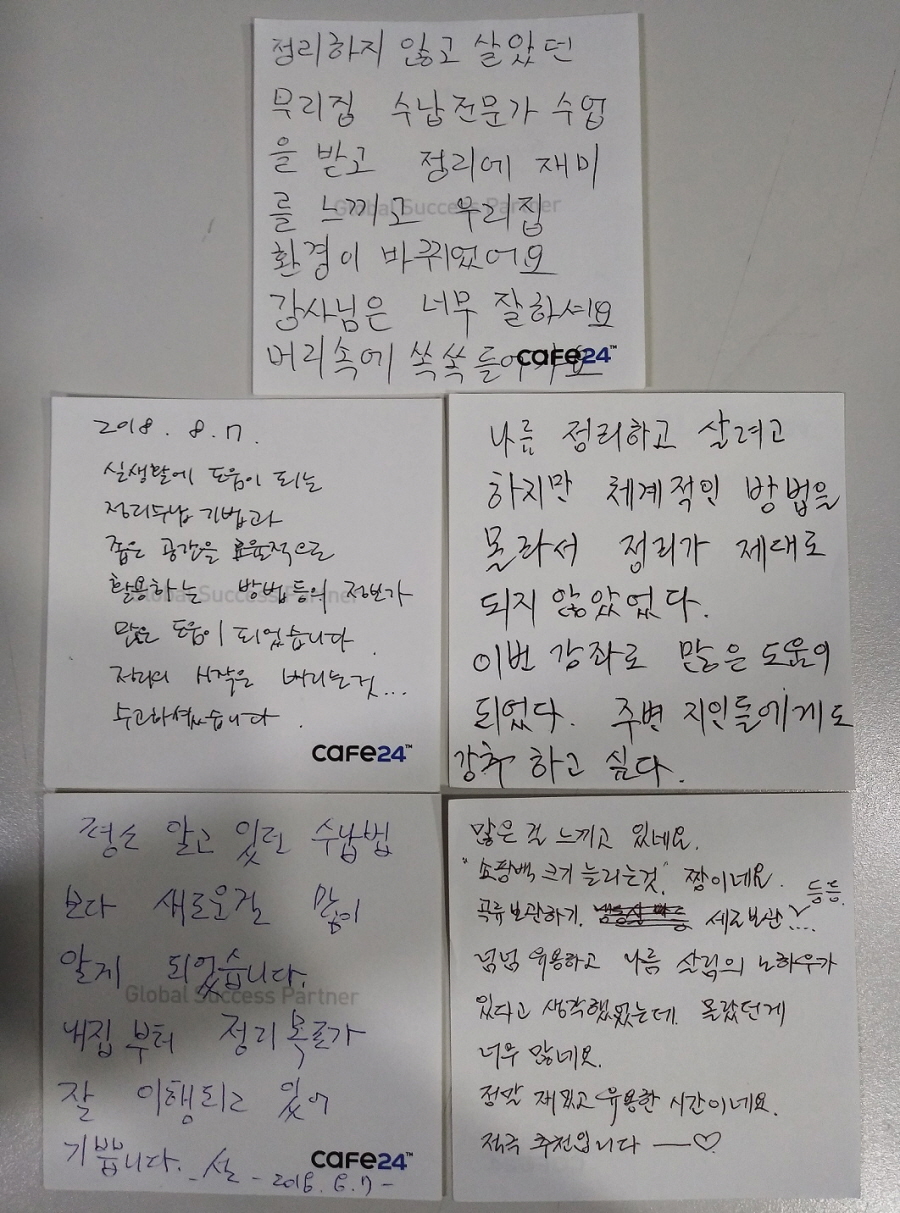 정리하지 않고 살았던
우리집 수납전문가 수업
을 받고 정리에 재미
를 느끼고 우리집
Global Success Partner
환경이 바뀌었어요
강사님은 너무 잘하셔요
머리속에 쏙쏙 들어가요
CAFE24™
2018. 8. 7.
실생활에 도움이 되는
정리수납 기법과
좁은 공간을 효율적으로
활용하는 방법등의 정보가
Global Success Partner
많은 도움이 되었습니다.
정리의 시작은 버리는것...
수고하셨습니다.
CAFE24™
나름 정리하고 살려고
하지만 체계적인 방법을
몰라서 정리가 제대로
되지 않았었다.
이번 강좌로 많은 도움이
되었다. 주변 지인들에게도
강추 하고 싶다.
평소 알고 있던 수납법
보다 새로운걸 많이
알게 되었습니다.
Global Success Partner
내집 부터 정리 목록가
잘 이행되고 있어
기쁩니다.
CAFE24™
많은 걸 느끼고 있네요.
"쇼핑백 크기 늘리는것" 짱이네요.
곡류보관하기. 세로보관.... 등등.
넘넘 유용하고 나름 살림의 노하우가
있다고 생각했었는데. 몰랐던게
너무 많네요.
정말 재밌고 유용한 시간이네요.
적극 추천입니다 ──♡